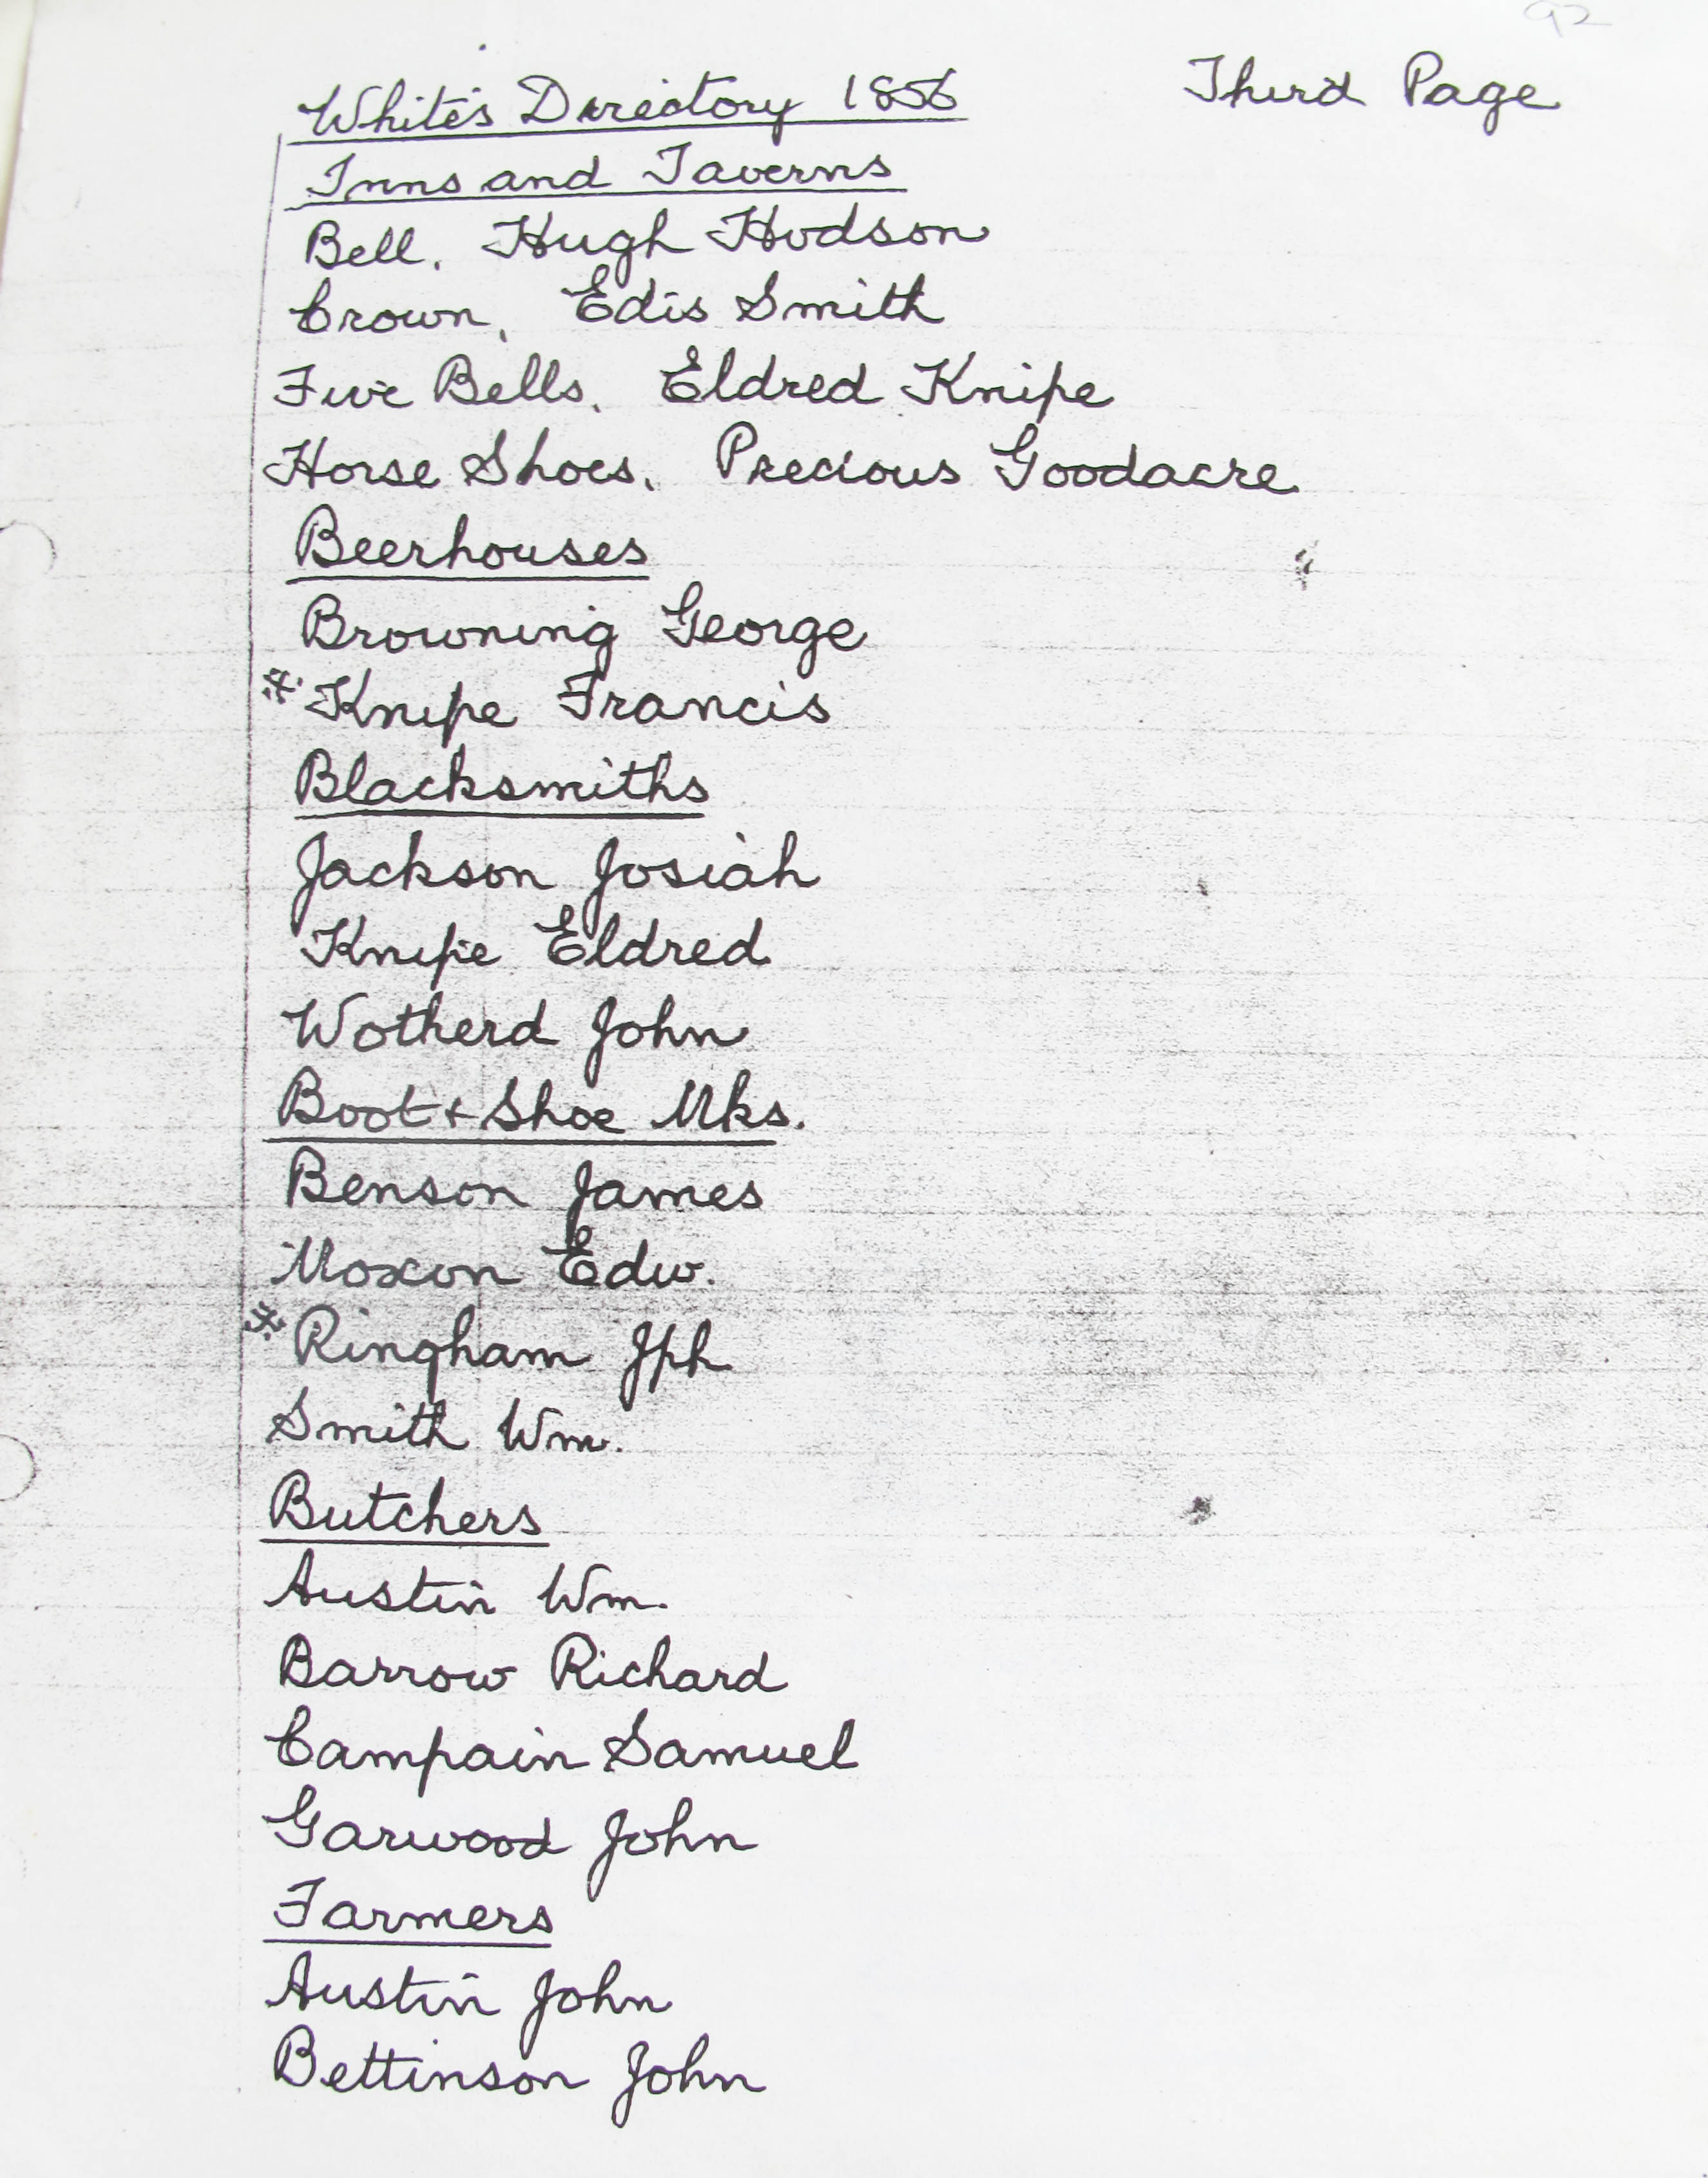 92
White's Directory 1856 Third Page
Inns and Taverns
Bell. Hugh Hodson
Crown, Edis Smith
Five Bells. Eldred Knipe
Horse Shoes. Precious Goodacre
Beerhouses
Browning George
* Knipe Francis
Blacksmiths
Jackson Josiah
Knipe Eldred
Wotherd John
Boot + Shoe Mks.
Benson James
Moxon Edw.
* Ringham Jph
Smith Wm.
Butchers
Austin Wm.
Barrow Richard
Campain Samuel
Garwood John
Farmers
Austin John
Bettinson John